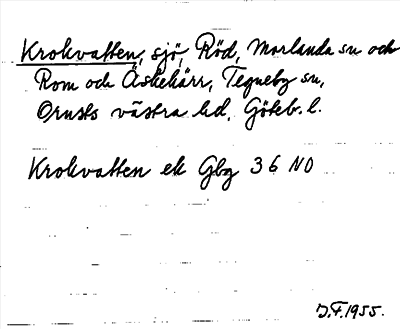 Krokvatten, sjö, Röd, Morlanda sn och
Rom och Äskekärr, Tegneby sn,
Orusts västra hd, Göteb. l.
Krokvatten ek Gbg 36 NO
J.F. 1955.